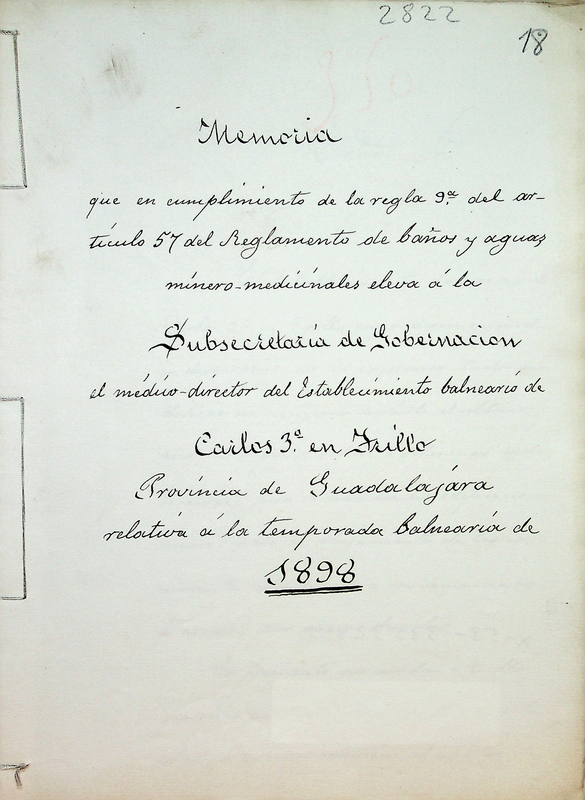 2822
18
350
Memoria
que en cumplimiento de la regla 9.ª del ar-
tículo 57 del Reglamento de baños y aguas
minero-medicinales eleva á la
Subsecretaría de Gobernacion
el médico-director del Establecimiento balneario de
Carlos 3.º en Trillo
Provincia de Guadalajára
relativa á la temporada balnearia de
1898